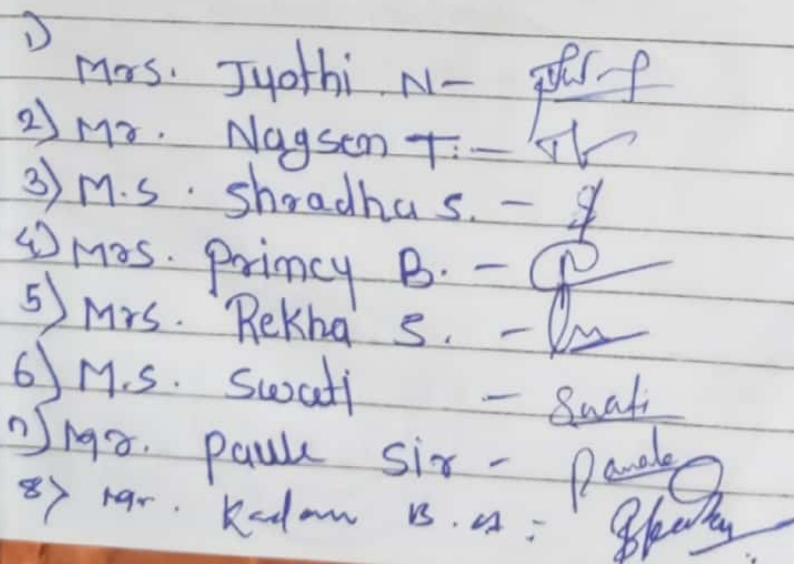 1)
Mrs. Jyothi N-
2) Mr. Nagsen T. -
3) M.S. Shradha S. -
4) Mrs. Princy B. -
5) Mrs. Rekha S. -
6) M.S. Swati - Swati
7) Mr. Sir -
8) Mr. Kadam B.